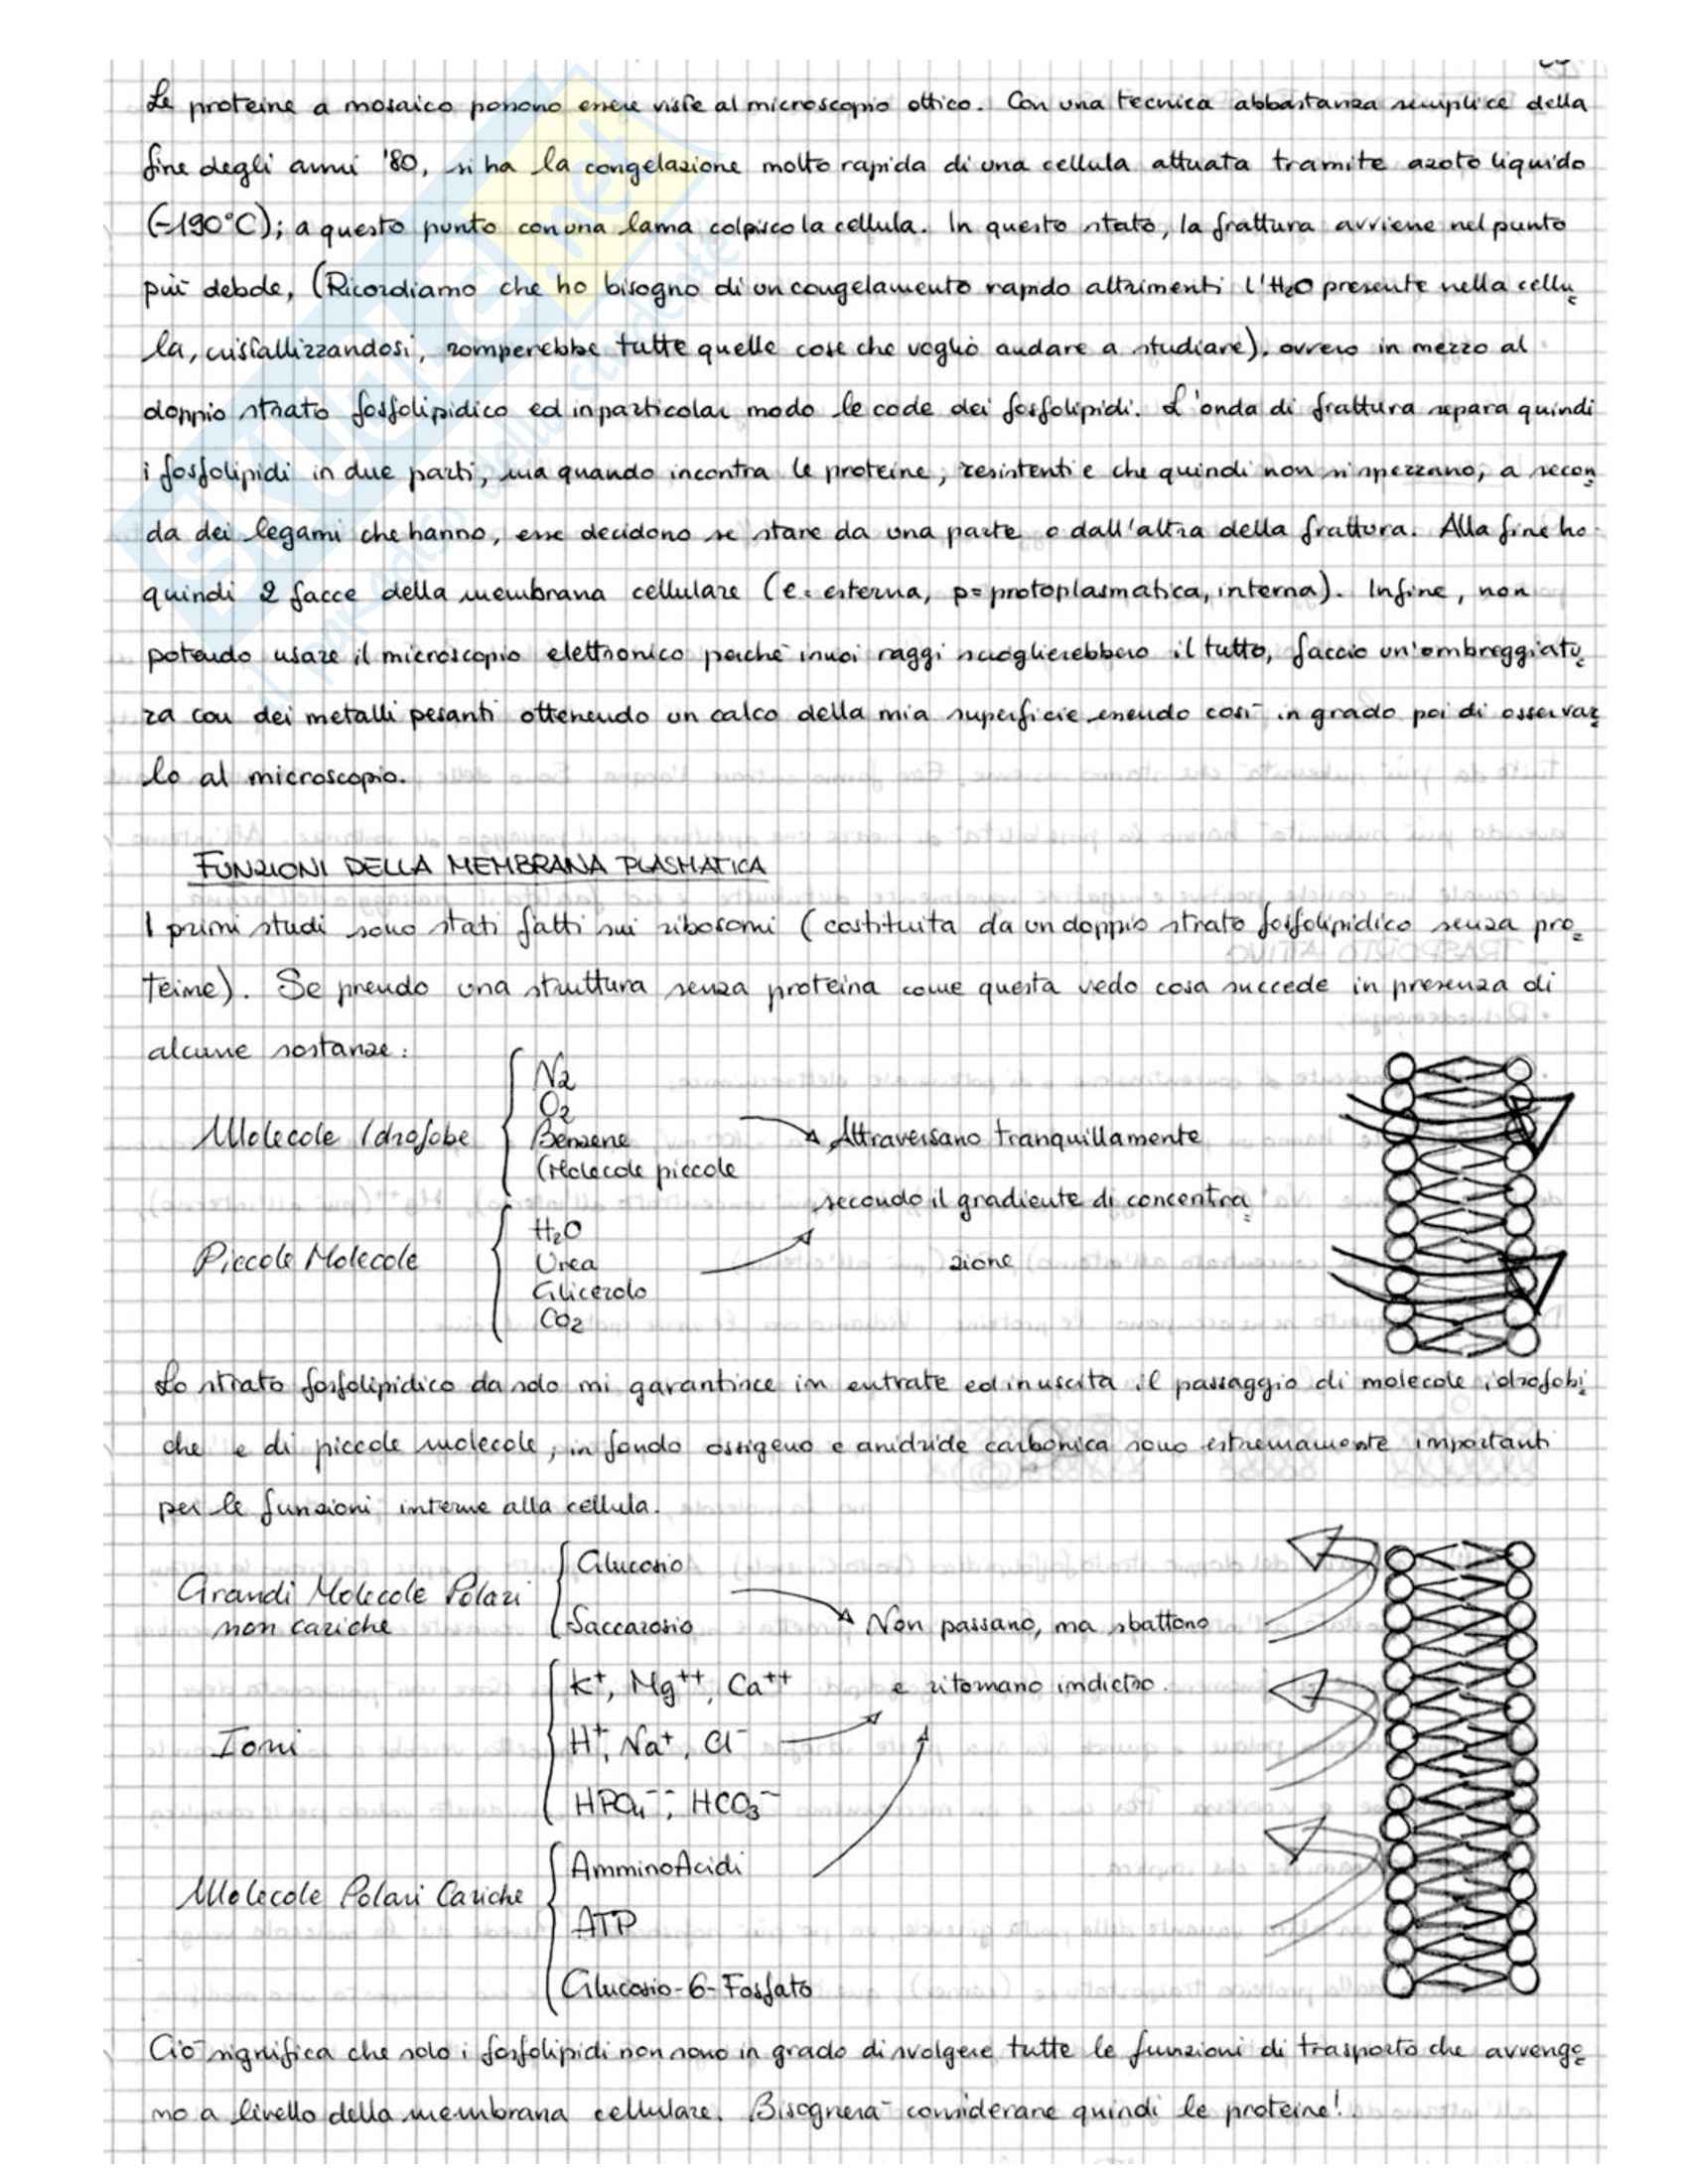 Le proteine a mosaico possono essere viste al microscopio ottico. Con una tecnica abbastanza semplice della
fine degli anni '80, si ha la congelazione molto rapida di una cellula attuata tramite azoto liquido
(-190°C); a questo punto con una lama colpisco la cellula. In questo stato, la frattura avviene nel punto
più debole, (Ricordiamo che ho bisogno di un congelamento rapido altrimenti l'H₂O presente nella cellu
la, cristallizzandosi, romperebbe tutte quelle cose che voglio andare a studiare). ovvero in mezzo al
doppio strato fosfolipidico ed in particolar modo le code dei fosfolipidi. L'onda di frattura separa quindi
i fosfolipidi in due parti, ma quando incontra le proteine, resistenti e che quindi non si spezzano, a secon
da dei legami che hanno, esse decidono se stare da una parte o dall'altra della frattura. Alla fine ho
quindi 2 facce della membrana cellulare (e = esterna, p = protoplasmatica, interna). Infine, non
potendo usare il microscopio elettronico perchè i suoi raggi scioglierebbero il tutto, faccio un'ombreggiatu
ra con dei metalli pesanti ottenendo un calco della mia superficie essendo così in grado poi di osservar
lo al microscopio.
FUNZIONI DELLA MEMBRANA PLASMATICA
I primi studi sono stati fatti sui ribosomi (costituita da un doppio strato fosfolipidico senza pro
teine). Se prendo una struttura senza proteina come questa vedo cosa succede in presenza di
alcune sostanze:
N2
O2
Molecole Idrofobe Benzene Attraversano tranquillamente
(Molecole piccole
secondo il gradiente di concentra
H₂O
Piccole Molecole Urea zione
Glicerolo
CO2
Lo strato fosfolipidico da solo mi garantisce in entrate ed in uscita il passaggio di molecole idrofobi
che e di piccole molecole, in fondo ossigeno e anidride carbonica sono estremamente importanti
per le funzioni interne alla cellula.
Glucosio
Grandi Molecole Polari
non cariche Saccarosio Non passano, ma sbattono
K⁺, Mg⁺⁺, Ca⁺⁺ e ritornano indietro.
Ioni H⁺, Na⁺, Cl⁻
HPO₄⁻⁻, HCO₃⁻
AmminoAcidi
Molecole Polari Cariche
ATP
Glucosio-6-Fosfato
Ciò significa che solo i fosfolipidi non sono in grado di svolgere tutte le funzioni di trasporto che avvengo
no a livello della membrana cellulare. Bisognerà considerare quindi le proteine!